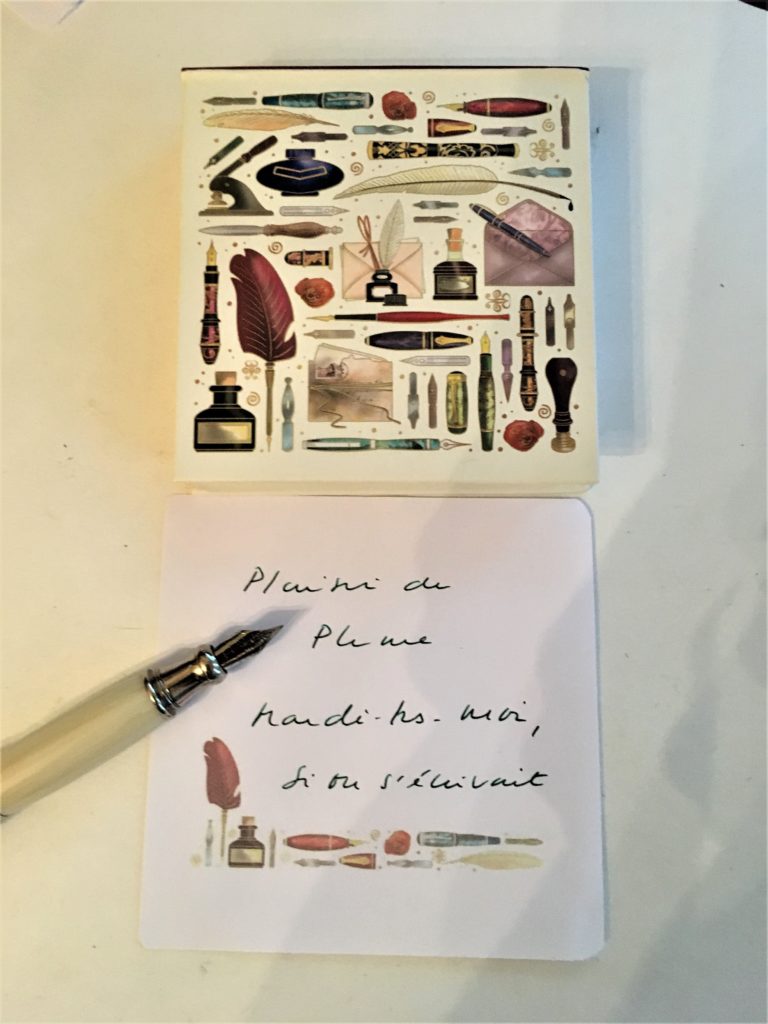 Plaisir de
Plume
Mardi-tes-moi,
Si on s'écrivait